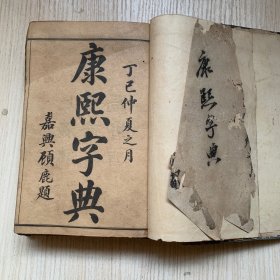 丁巳仲夏之月
康熙字典
嘉興顾鹿題
康熙字典